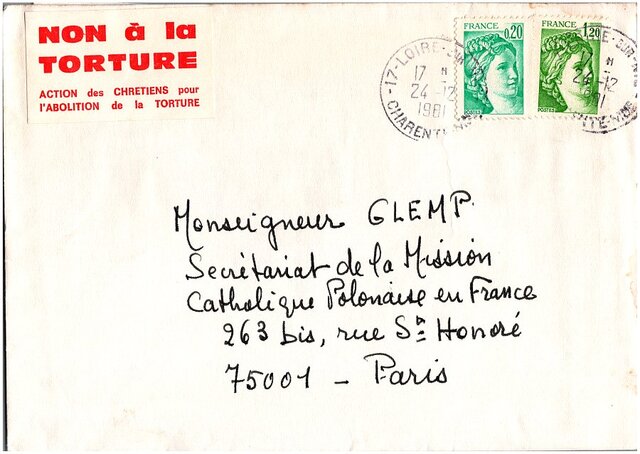 NON à la
TORTURE
ACTION des CHRETIENS pour
l'ABOLITION de la TORTURE
17-LOIRE-SUR-
17 H
24-12
1981
CHARENTE-
FRANCE
0,20
POSTES
FRANCE
1,20
POSTES
E-SUR-N
H
24-12
81
NTE-Mme
Monseigneur GLEMP.
Secrétariat de la Mission
Catholique Polonaise en France
263 bis, rue St Honoré
75001 - Paris